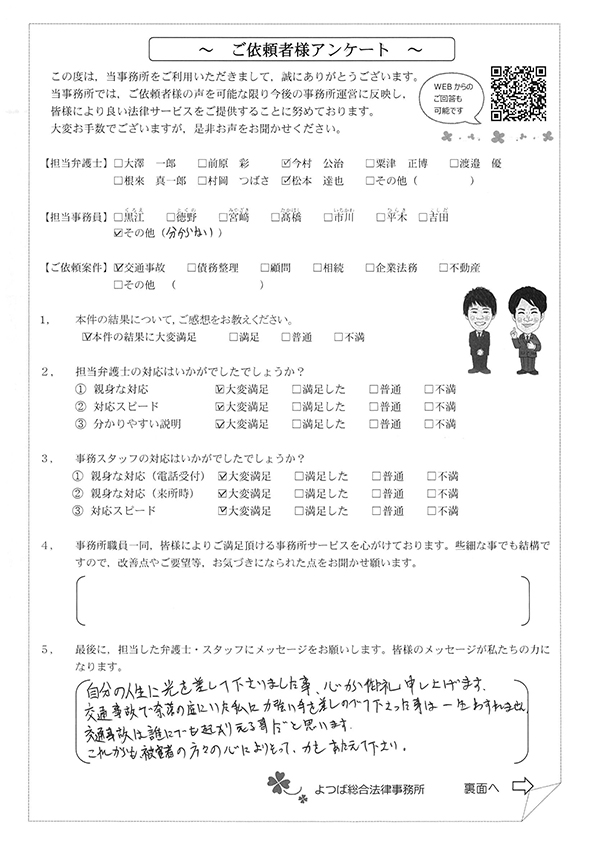 ～ ご依頼者様アンケート ～
この度は，当事務所をご利用いただきまして，誠にありがとうございます。
当事務所では，ご依頼者様の声を可能な限り今後の事務所運営に反映し，
皆様により良い法律サービスをご提供することに努めております。
大変お手数でございますが，是非お声をお聞かせください。
WEBからの
ご回答も
可能です
【担当弁護士】 □大澤 一郎 □前原 彩 ☑今村 公治 □粟津 正博 □渡邉 優
□根來 真一郎 □村岡 つばさ ☑松本 達也 □その他（ ）
【担当事務員】 □黒江 □徳野 □宮﨑 □髙橋 □市川 □平木 □吉田
☑その他（分からない）
【ご依頼案件】 ☑交通事故 □債務整理 □顧問 □相続 □企業法務 □不動産
□その他 （ ）
1． 本件の結果について，ご感想をお教えください。
☑本件の結果に大変満足 □満足 □普通 □不満
2． 担当弁護士の対応はいかがでしたでしょうか？
① 親身な対応 ☑大変満足 □満足した □普通 □不満
② 対応スピード ☑大変満足 □満足した □普通 □不満
③ 分かりやすい説明 ☑大変満足 □満足した □普通 □不満
3． 事務スタッフの対応はいかがでしたでしょうか？
① 親身な対応（電話受付） ☑大変満足 □満足した □普通 □不満
② 親身な対応（来所時） ☑大変満足 □満足した □普通 □不満
③ 対応スピード ☑大変満足 □満足した □普通 □不満
4． 事務所職員一同，皆様によりご満足頂ける事務所サービスを心がけております。些細な事でも結構で
すので，改善点やご要望等，お気づきになられた点をお聞かせ願います。
5． 最後に，担当した弁護士・スタッフにメッセージをお願いします。皆様のメッセージが私たちの力に
なります。
自分の人生に光を差して下さりました事、心から御礼申し上げます。
交通事故で奈落の底にいた私に力強い手を差しのべて下さった事は一生わすれません。
交通事故は誰にでも起こりえる事だと思います。
これからも被害者の方々の心によりそって、力をあたえて下さい。
よつば総合法律事務所
裏面へ